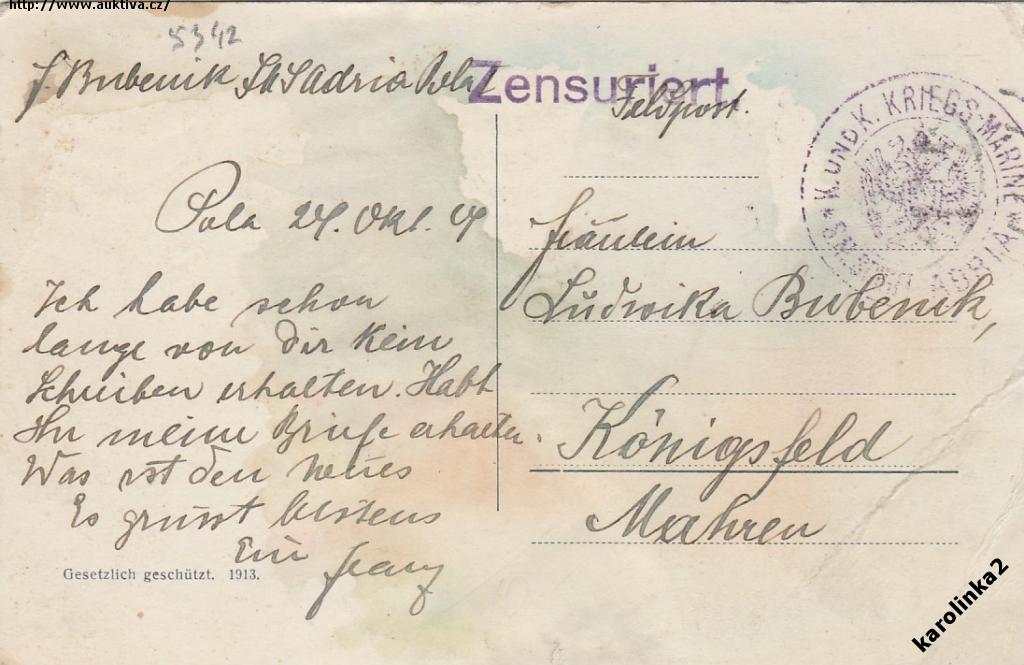 http://www.auktiva.cz/
5342
F. Bubenik Adria Pola
Zensuriert
Feldpost.
K. UND K. KRIEGS-MARINE
ADRIA
Pola 24. Okt.
Ich habe schon
lange von dir kein
Schreiben erhalten. Habt
Ihr meine Briefe erhalten.
Was ist den neues
Es grüsst bestens
Franz
Gesetzlich geschützt. 1913.
Fräulein
Ludwika Bubenik,
Königsfeld
Mähren
karolinka2